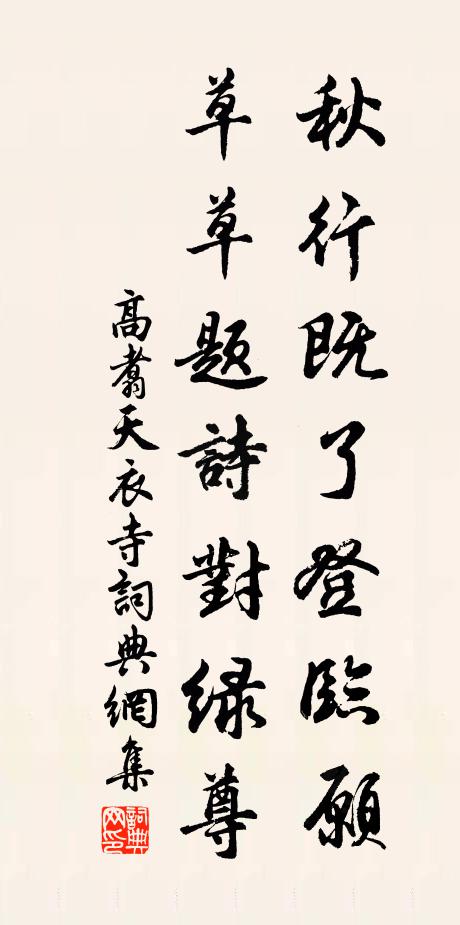 秋行既了登臨願
草草題詩對綠尊
高翥天衣寺詞典網集
詞典網印